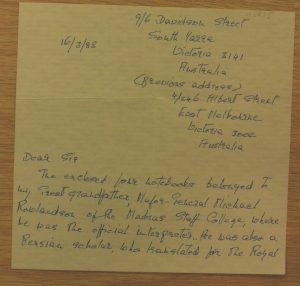 9/6 Davidson Street
South Yarra
Victoria 3141
Australia
16/3/88
(previous address)
4/226 Albert Street
East Melbourne
Victoria 3002
Australia
Dear Sir
The enclosed four notebooks belonged to
my Great grandfather, Major-General Michael
Rowlandson of the Madras Staff College, where
he was the official interpreter. He was also a
Persian scholar, who translated for the Royal